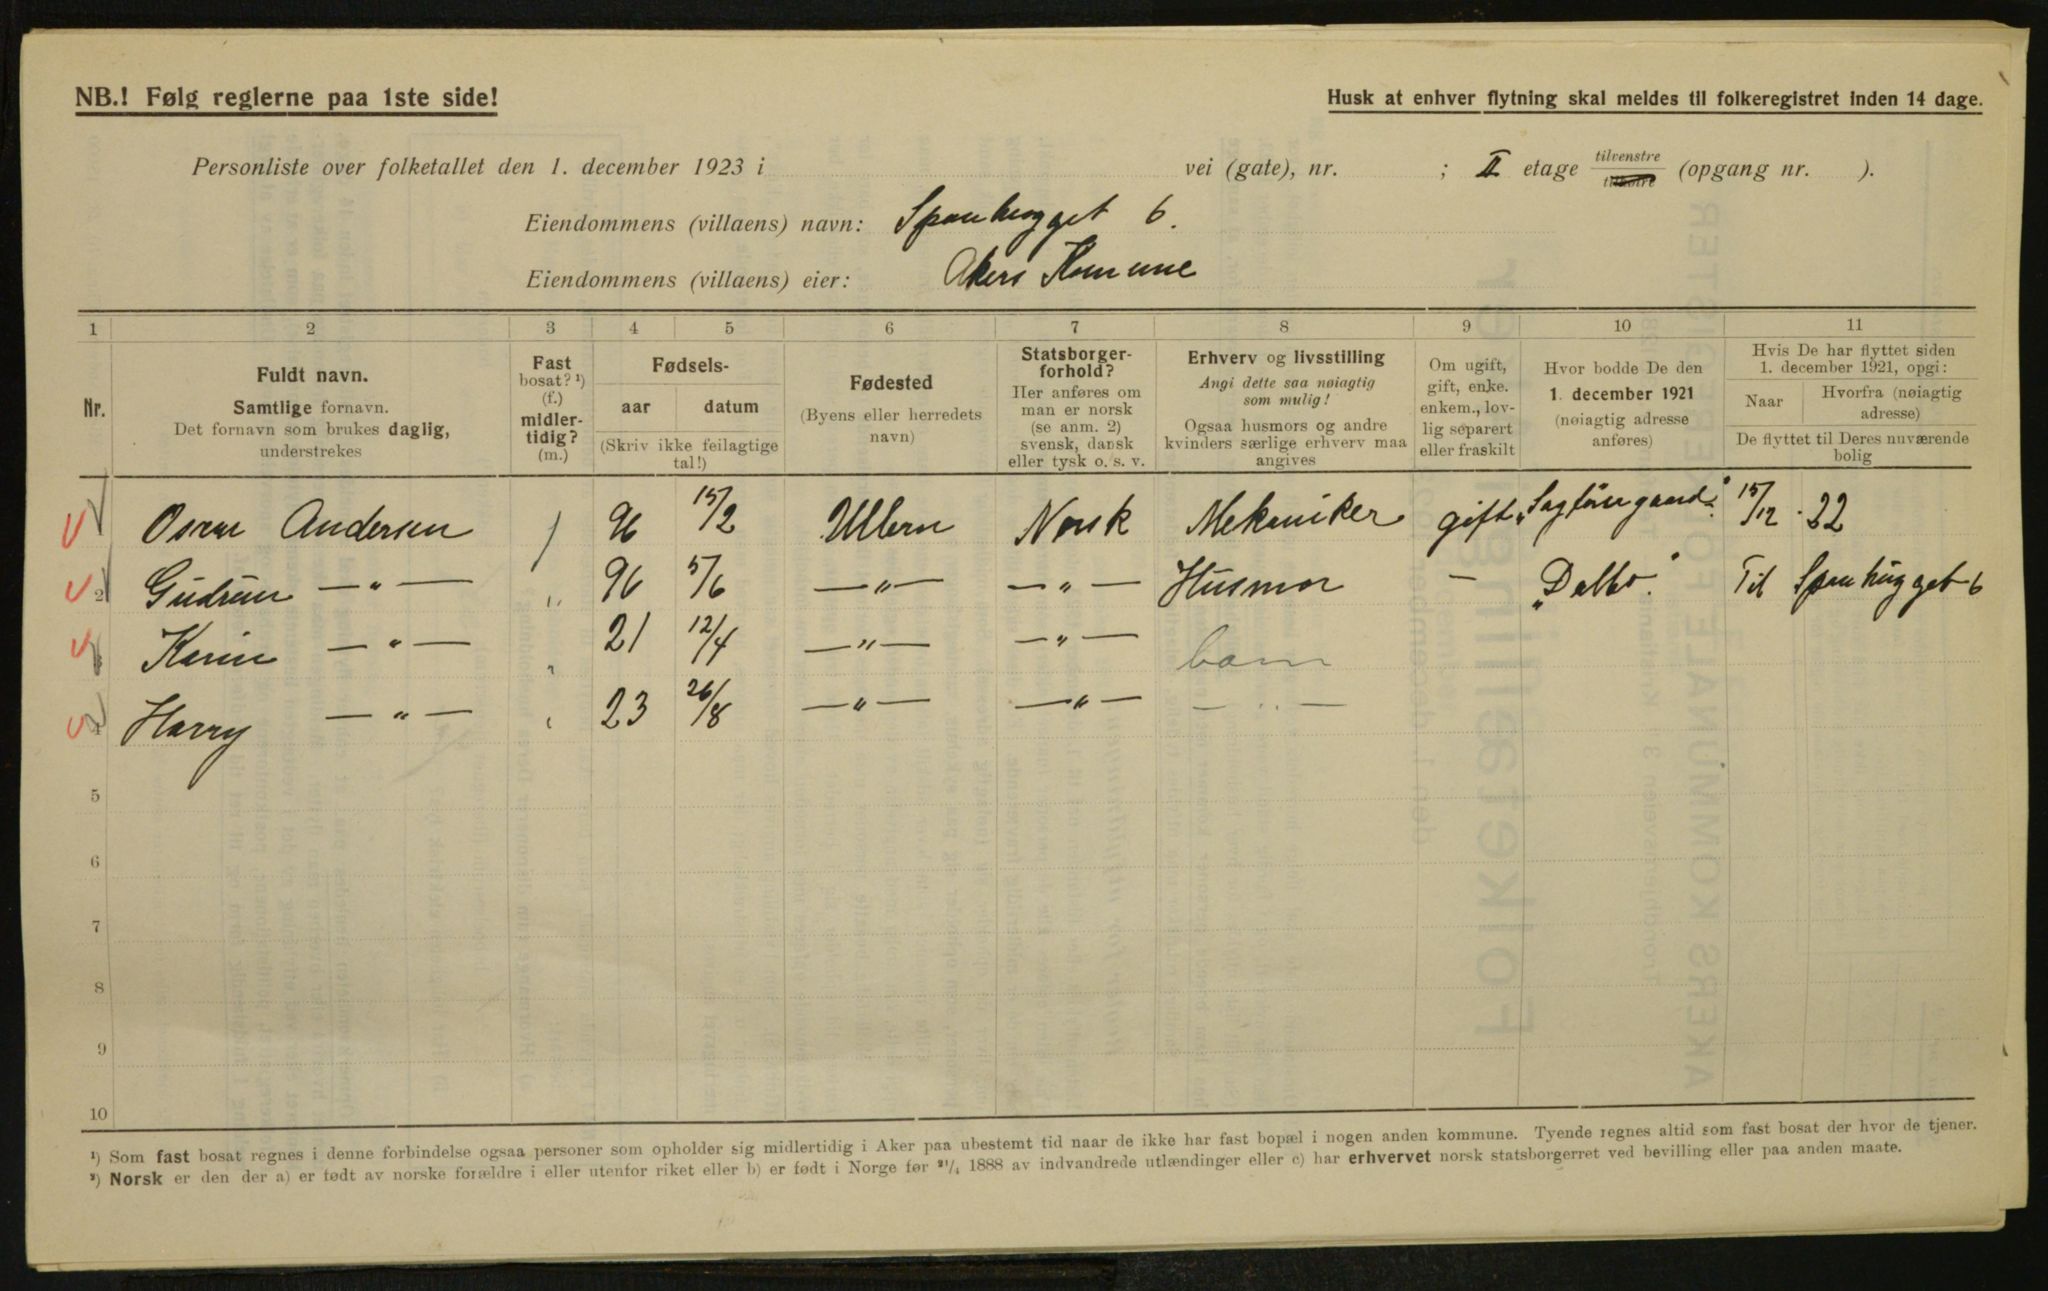 NB.! Følg reglerne paa 1ste side!
Husk at enhver flytning skal meldes til folkeregistret inden 14 dage.
Personliste over folketallet den 1. december 1923 i vei (gate), nr. ; II etage tilvenstre tilhøire (opgang nr. ).
Eiendommens (villaens) navn: Spanhugget 6.
Eiendommens (villaens) eier: Akers Komune
1 2 3 4 5 6 7 8 9 10 11
Nr.
Fuldt navn.
Samtlige fornavn.
Det fornavn som brukes daglig,
understrekes
Fast
bosat? ¹)
(f.)
midler-
tidig?
(m.)
Fødsels-
aar datum
(Skriv ikke feilagtige
tal!)
Fødested
(Byens eller herredets
navn)
Statsborger-
forhold?
Her anføres om
man er norsk
(se anm. 2)
svensk, dansk
eller tysk o. s. v.
Erhverv og livsstilling
Angi dette saa nøiagtig
som mulig!
Ogsaa husmors og andre
kvinders særlige erhverv maa
angives
Om ugift,
gift, enke.
enkem., lov-
lig separert
eller fraskilt
Hvor bodde De den
1. december 1921
(nøiagtig adresse
anføres)
Hvis De har flyttet siden
1. december 1921, opgi:
Naar
Hvorfra (nøiagtig
adresse)
De flyttet til Deres nuværende
bolig
Oscar Andersen / 96 15/2 Ullern Norsk Mekaniker gift 15/12 . 22
2 Gudrun —"— " 96 5/6 —"— —"— Husmor — „Dalbo" Til Spanhugget 6
Karin —"— " 21 12/4 —"— —"— barn
4 Harry —"— " 23 26/8 —"— —"— —"—
5
6
7
8
9
10
¹) Som fast bosat regnes i denne forbindelse ogsaa personer som opholder sig midlertidig i Aker paa ubestemt tid naar de ikke har fast bopæl i nogen anden kommune. Tyende regnes altid som fast bosat der hvor de tjener.
²) Norsk er den der a) er født av norske forældre i eller utenfor riket eller b) er født i Norge før ²¹/₄ 1888 av indvandrede utlændinger eller c) har erhvervet norsk statsborgerret ved bevilling eller paa anden maate.